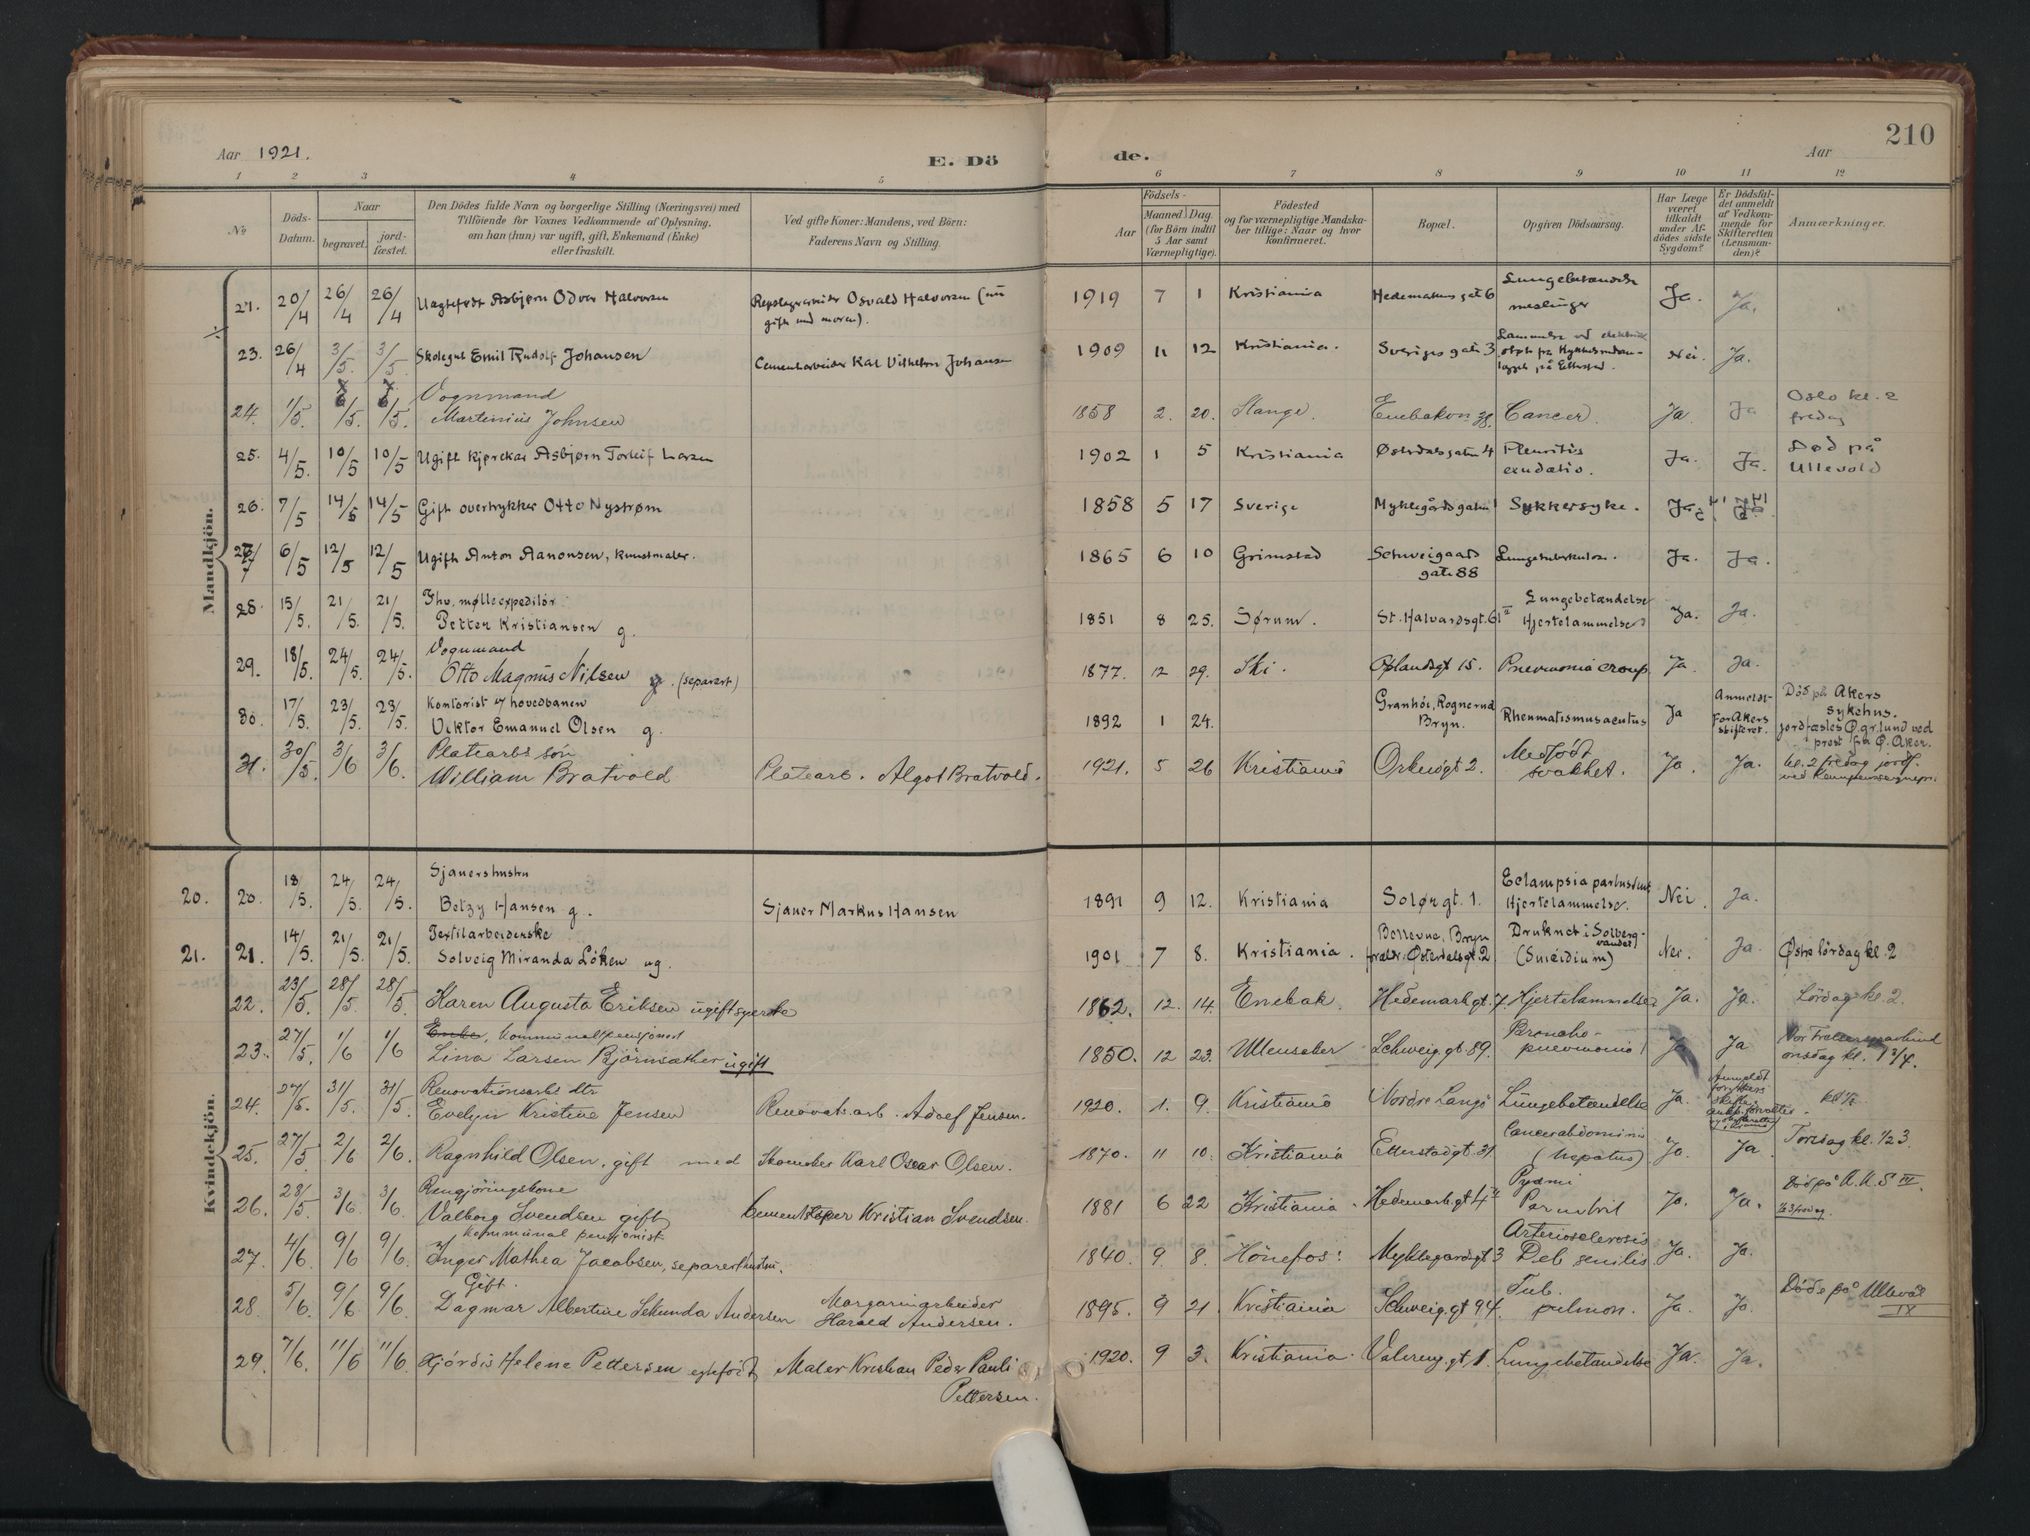 Aar 1921.
E. Dö
de.
Aar
210
1 2 3 4 5 6 7 8 9 10 11 12
No
Döds-Datum.
Naar
begravet.
jord-fæstet.
Den Dödes fulde Navn og borgerlige Stilling (Næringsvei) med
Tilföiende for Voxnes Vedkommende af Oplysning.
om han (hun) var ugift, gift, Enkemand (Enke)
eller fraskilt.
Ved gifte Koner: Mandens, ved Börn:
Faderens Navn og Stilling.
Födsels-
Aar
Maaned Dag.
(for Börn indtil
5 Aar samt
Værnepligtige).
Födested
og for værnepligtige Mandska-
ber tillige: Naar og hvor
konfirmeret.
Bopæl.
Opgiven Dödsaarsag.
Har Læge
været
tilkaldt
under Af-
dödes sidste
Sygdom?
Er Dödsfal-
det anmeldt
af Vedkom-
mende for
Skifteretten
(Lensman-
den)?
Anmærkninger.
Mandkjön.
21. 20/4 26/4 26/4 Uægtefødt Asbjørn Odvar Halvorsen Osvald Halvorsen (nu gift med moren). 1919 7 1 Kristiania Hedemarksgat 6 Lungebetændelse meslinger Ja. Ja.
23. 26/4 3/5 3/5 Skolegut Emil Rudolf Johansen Cementarbeider Karl Vilhelm Johansen 1909 11 12 Kristiania. Sverigesgate 3 Nei Ja.
24. 1/5 6/5 6/5 Vognmand Martinius Johnsen 1858 2. 20. Stange. Cancer Ja Ja Oslo kl. 2 fredag
25. 4/5. 10/5 10/5 Ugift kjørekar Asbjørn Torleif Larsen 1902 1 5 Kristiania Østerdalsgaten 4 Pleuritis exudativ. Ja. Ja. Død på Ullevold
26. 7/5 14/5 14/5 Gift overtrykker Otto Nystrøm 1858 5 17 Sverige Myklegårdsgaten 1 Sykkersyke. Ja
27 6/5 12/5 12/5 Ugift Anton Aanonsen, kunstmaler. 1865 6 10 Grimstad Schweigaards gate 88 Lungetuberkulose. Ja. Ja.
28. 15/5. 21/5. 21/5. Fhv. mølleexpeditör Petter Kristiansen g. 1851 8 25. Sørum. St. Halvardsgt. 61 II Lungebetændelse Hjertelammelse Ja. Ja.
29. 18/5. 24/5. 24/5. Vognmand Otto Magnus Nilsen g. (separert) 1877. 12 29. Ski. Oplandsgt 15. Pneumonia croup. Ja Ja.
30. 17/5. 23/5. 23/5. Kontorist v/ hovedbanen Viktor Emanuel Olsen g. 1892 1 24. Granhöi, Rognerud Bryn. Rheumatismus acutus Ja Anmeldt for Akers skifteret. Död på Akers sykehus. jordfæstes Ø. gr.lund ved prest fra Ø. Aker.
31. 30/5 3/6 3/6. Platearbs sön William Bratvold Platearb. Algot Bratvold. 1921. 5 26 Kristiania Orknögt 2. Medfödt svakhet. Ja. Ja. kl. 2 fredag jordf.
Kvindekjön.
20. 20. 18/5. 24/5. 24/5. Sjauershustru Betzy Hansen g. Sjauer Markus Hansen 1891 9 12. Kristiania Solørgt. 1. Eclampsia Hjertelammelse. Nei Ja.
21. 21. 14/5. 21/5. 21/5. Textilarbeiderske Solveig Miranda Löken ug. 1901 7 8. Kristiania. Bellevue, Bryn Østerdalsgt 2 Druknet i Solbergvandet (Suicidium) Nei. Ja Østre lördag kl. 2
22. 23/5 28/5 28/5 Karen Augusta Eriksen ugift syerske 1862. 12. 14. Enebak. Hedemarkgt. 7. Hjertelammelse Ja. Ja. Lördag kl. 2.
23. 27/5. 1/6 1/6 Enke, kommunalpensjonist Lina Larsen Björnsæther ugift 1850. 12 23. Ullensaker Schweig. gt 89. Broncho-pneumonia Ja Ja Vor Frelsers onsdag kl. 1 3/4.
24. 27/5. 31/5. 31/5. Renovationsarbs dtr Evelyn Kristine Jensen Renovat.arb. Adolf Jensen. 1920. 1. 9. Kristiania Nordre Langö Lungebetændelse Ja. Anmeldt
25. 27/5. 2/6 2/6. Ragnhild Olsen, gift med Skomaker Karl Oscar Olsen. 1870. 11 10. Kristiania Etterstadgt. 31 Cancer abdominis (hepatus) Ja. Ja Torsdag kl. 1/2 3.
26. 28/5. 3/6 3/6. Rengjöringskone Valborg Svendsen gift Cementstöper Kristian Svendsen. 1881 6 22 Kristiania. Hedemark.gt 4 II Pyæmi Ja. Ja. Död på K.K.S III.
27. 4/6. 9/6 9/6. Kommunal pensjonist Inger Mathea Jacobsen, separert hustru. 1840. 9. 8. Hönefos. Myklegardsgt 3 Arteriosclerosis Deb. senilis Ja. Ja.
28. 5/6. 9/6 9/6. Gift. Dagmar Albertine Sekunda Andersen Margarinarbeider Harald Andersen. 1895. 9 21. Kristiania Schweig. gt 94. Tub. pulmon. Ja Ja. Döde på Ullevål IX
29. 7/6. 11/6 11/6. Hjördis Helene Pettersen egtefödt Maler Kristian Peder Pauli Pettersen. 1920. 9 3. Kristiania. Valereng. gt, 1. Lungebetændelse Ja. Ja.